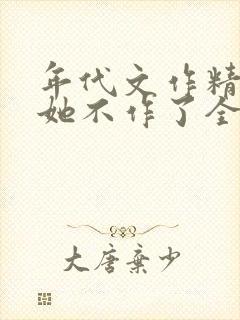 年代文作精
她不作了全
大唐弃少